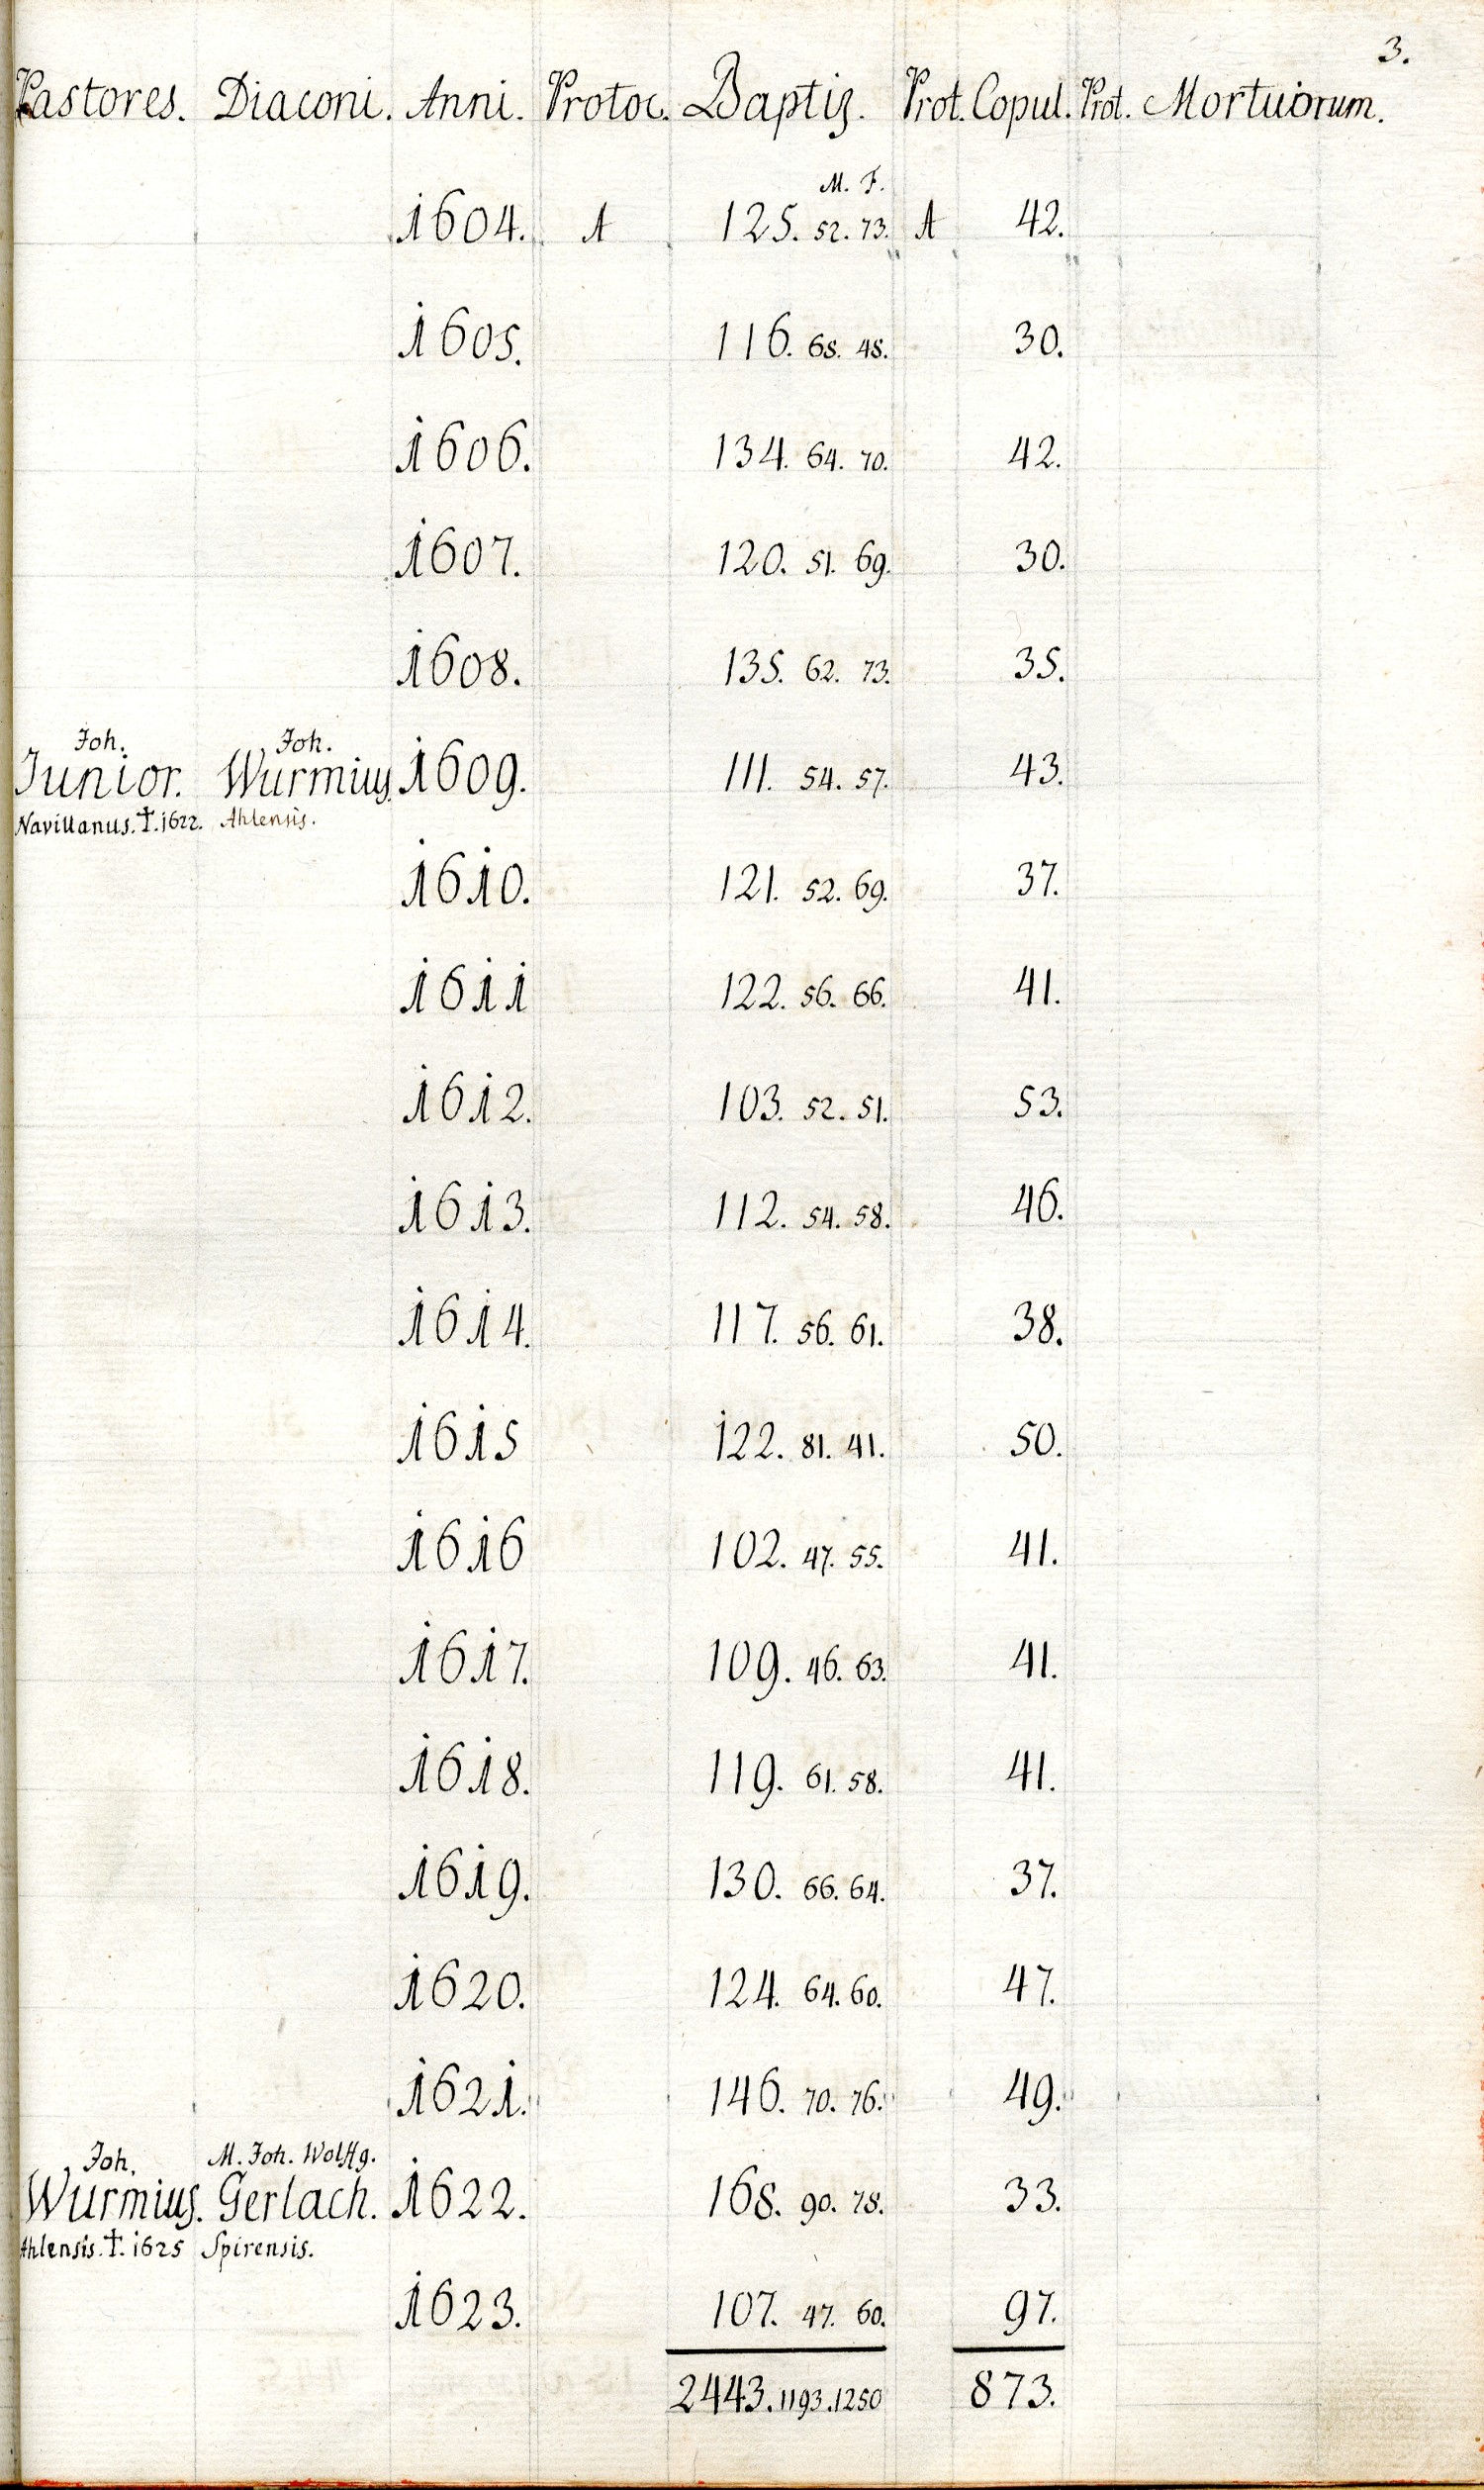 3.
Pastores. Diaconi. Anni. Protoc. Baptiz. Prot. Copul. Prot. Mortuorum.
M. F.
1604. A 125. 52. 73. A 42.
1605. 116. 68. 48. 30.
1606. 134. 64. 70. 42.
1607. 120. 51. 69. 30.
1608. 135. 62. 73. 35.
Joh. Joh.
Junior. Wurmius. 1609. 111. 54. 57. 43.
Navillanus. †. 1622. Ahlensis.
1610. 121. 52. 69. 37.
1611 122. 56. 66. 41.
1612. 103. 52. 51. 53.
1613. 112. 54. 58. 46.
1614. 117. 56. 61. 38.
1615 122. 81. 41. 50.
1616 102. 47. 55. 41.
1617. 109. 46. 63. 41.
1618. 119. 61. 58. 41.
1619. 130. 66. 64. 37.
1620. 124. 64. 60. 47.
1621. 146. 70. 76. 49.
Joh. M. Joh. Wolffg.
Wurmius. Gerlach. 1622. 168. 90. 78. 33.
Ahlensis. †. 1625 Spirensis.
1623. 107. 47. 60. 97.
2443. 1193. 1250 873.